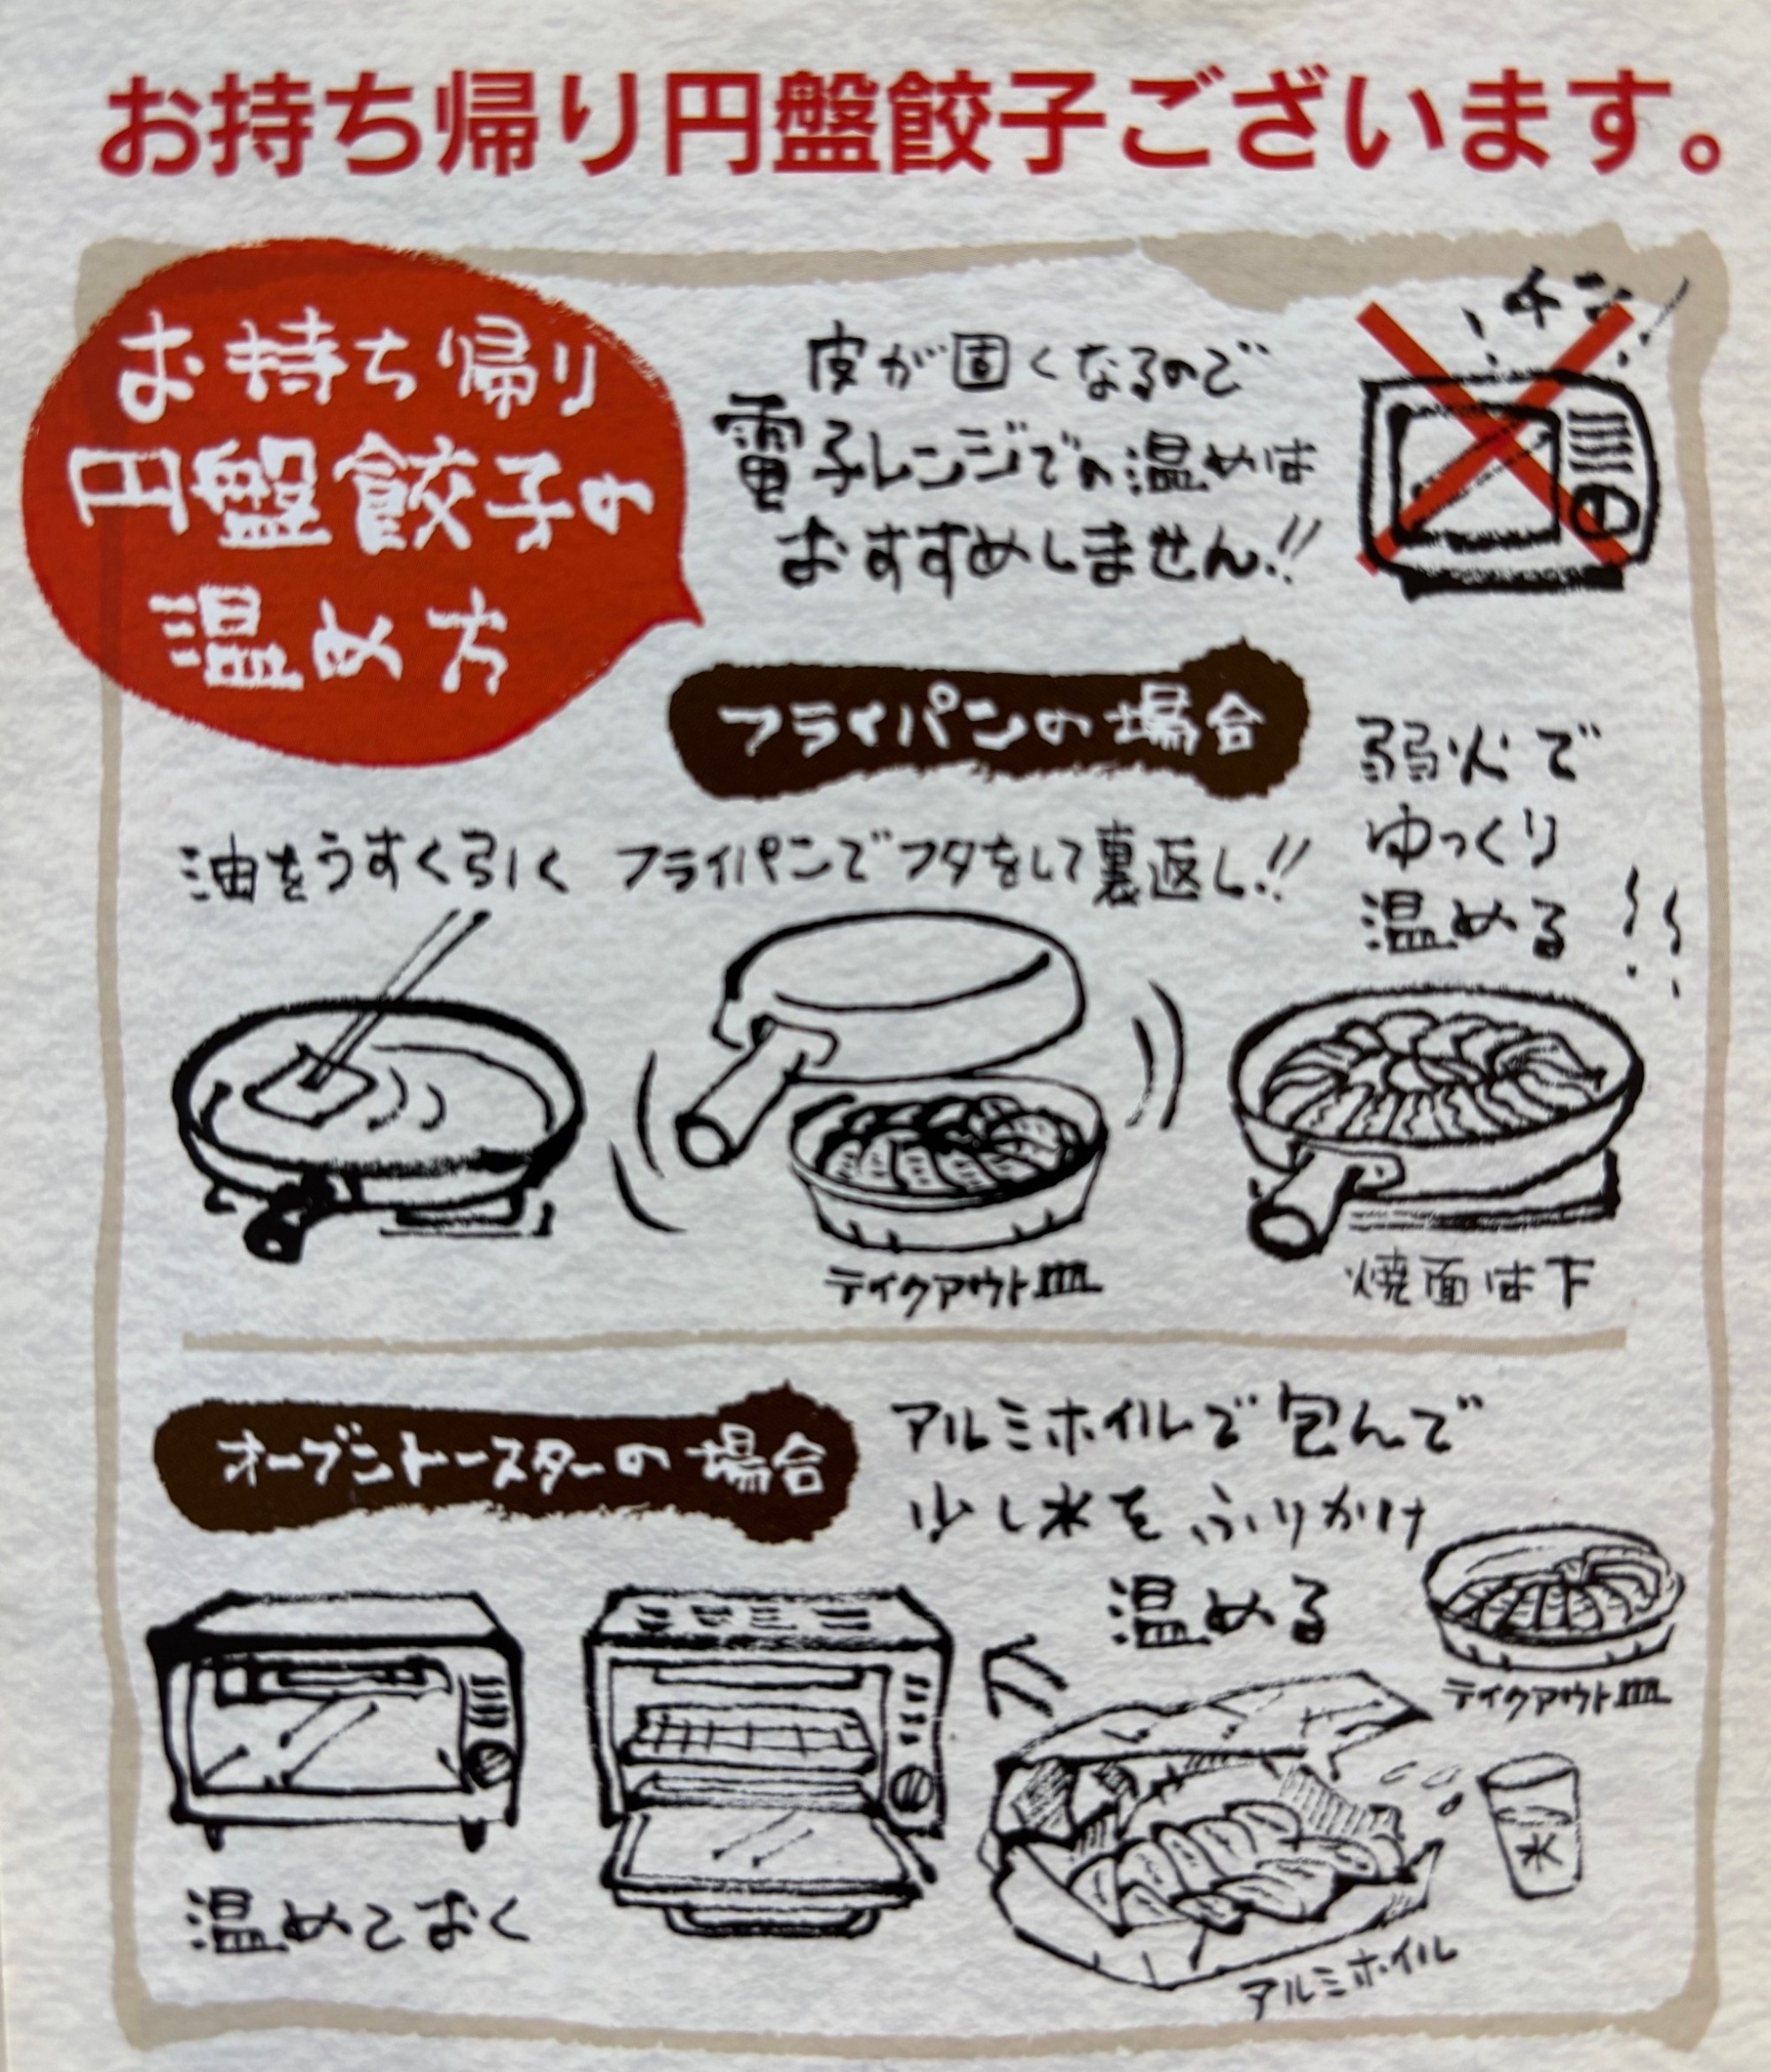 お持ち帰り円盤餃子ございます。
お持ち帰り
円盤餃子の
温め方
皮が固くなるので
電子レンジでの温めは
おすすめしません!!
チン
フライパンの場合
油をうすく引く
フライパンでフタをして裏返し!!
弱火で
ゆっくり
温める
テイクアウト皿
焼面は下
オーブントースターの場合
アルミホイルで包んで
少し水をふりかけ
温める
テイクアウト皿
水
温めておく
アルミホイル